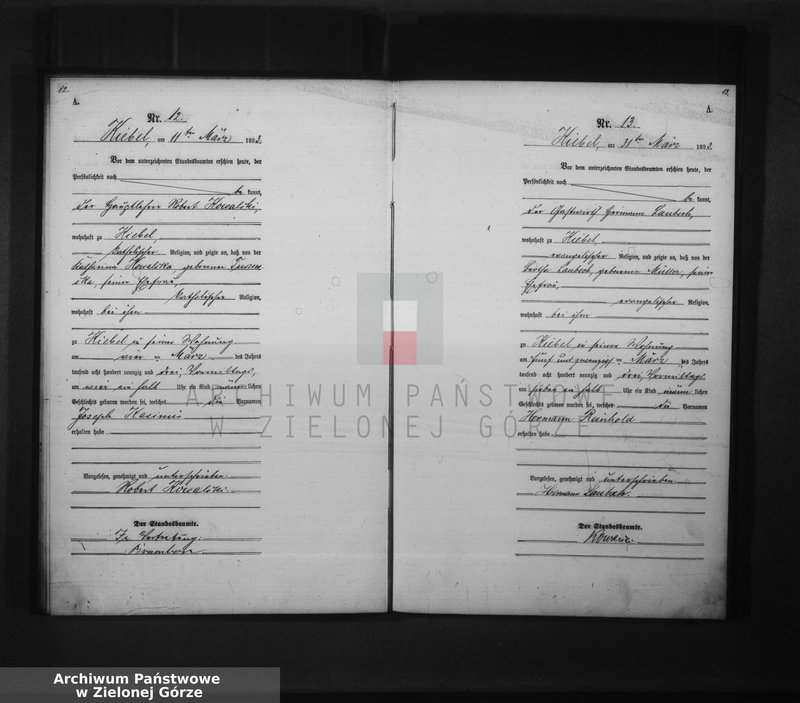 12.
A.
Nr. 12.
Kiebel, am 11ten März 1893.
Vor dem unterzeichneten Standesbeamten erschien heute, der
Persönlichkeit nach
be kannt,
der Hauptlehrer Robert Kowalski,
wohnhaft zu Kiebel,
katholischer Religion, und zeigte an, daß von der
Katharina Kowalska geborenen
ska, seiner Ehefrau,
katholischer Religion,
wohnhaft bei ihm
zu Kiebel in seiner Wohnung
am vier ten März des Jahres
tausend acht hundert neunzig und drei, Vormittags
um vier ein halb Uhr ein Kind männ lichen
Geschlechts geboren worden sei, welches die Vornamen
Joseph Kasimir
erhalten habe.
Vorgelesen, genehmigt und unterschrieben.
Robert Kowalski.
Der Standesbeamte.
In Vertretung.
13.
A.
Nr. 13.
Kiebel, am 31ten März 1893.
Vor dem unterzeichneten Standesbeamten erschien heute, der
Persönlichkeit nach
be kannt,
der Gastwirth Hermann Laubsch,
wohnhaft zu Kiebel,
evangelischer Religion, und zeigte an, daß von der
Bertha Laubsch, geborenen Müller, seiner
Ehefrau,
evangelischer Religion,
wohnhaft bei ihm
zu Kiebel in seiner Wohnung
am fünf und zwanzigsten März des Jahres
tausend acht hundert neunzig und drei, Vormittags
um sieben ein halb Uhr ein Kind männ lichen
Geschlechts geboren worden sei, welches die Vornamen
Hermann Reinhold
erhalten habe.
Vorgelesen, genehmigt und unterschrieben.
Hermann Laubsch.
Der Standesbeamte.
ARCHIWUM PAŃSTWOWE
W ZIELONEJ GÓRZE
Archiwum Państwowe
w Zielonej Górze